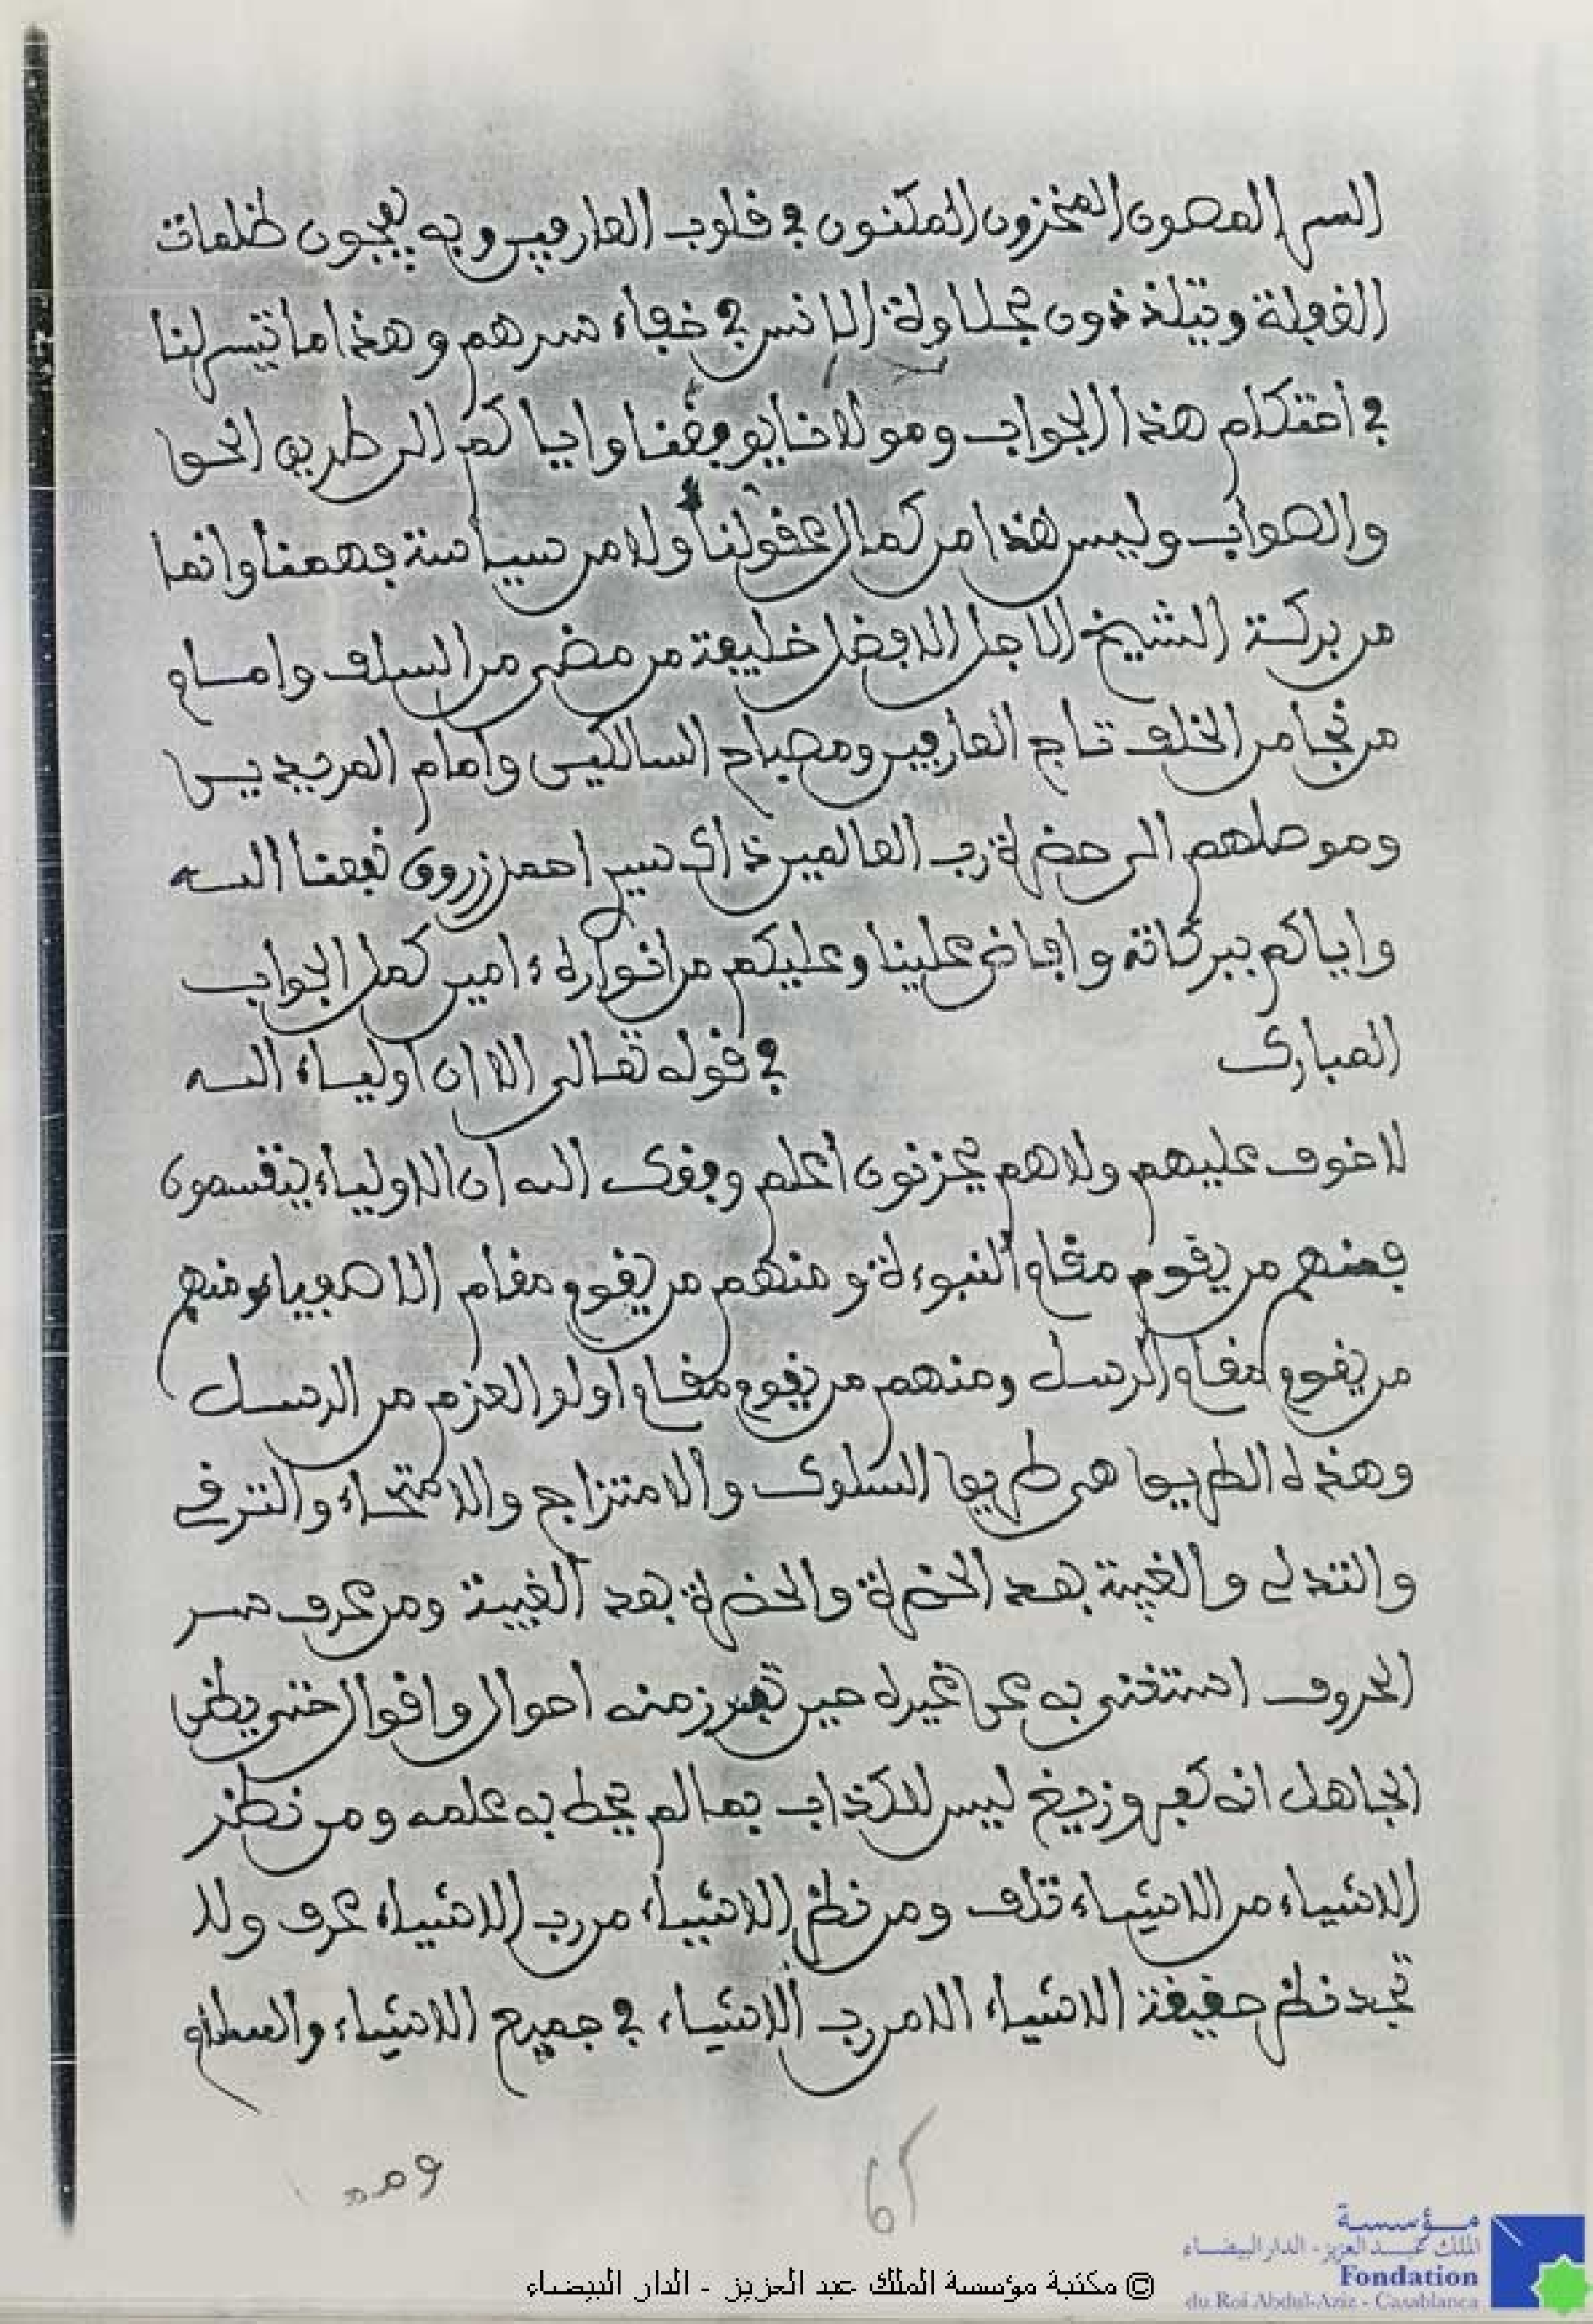 السر المصون المخزون المكنون في قلوب العارفين وبه يمحون ظلمات
الغفلة ويتلذذون بحلاوة الانس في خفاء سرهم وهذا ما تيسر لنا
في احتكام هذا الجواب ومولانا يوفقنا واياكم الى طريق الحق
والصواب وليس هذا من كمال عقولنا ولا من سياسة فهمنا وانما
من بركة الشيخ الاجل الافضل خليفة من مضى من السلف وامام
من نجا من الخلف تاج العارفين ومصباح السالكين وامام المريدين
وموصلهم الى حضرة رب العالمين ذاك سيد احمد زروق نفعنا الله
واياكم ببركاته وافاض علينا وعليكم من انواره ءامين كمل الجواب
المبارك في قوله تعالى الا ان اولياء الله
لا خوف عليهم ولا هم يحزنون اعلم وفقك الله ان الاولياء ينقسمون
فمنهم من يقوم مقام النبوءة ومنهم من يقوم مقام الاصفياء ومنهم
من يقوم مقام الرسل ومنهم من يقوم مقام اولو العزم من الرسل
وهذه الطريق هي طريق السلوك والامتزاج والامتحاء والترقي
والتدلي والغيبة بعد الحضرة والحضرة بعد الغيبة ومن عرف سر
الحروف استغنى به عن غيره حين تبرز منه احوال واقوال حتى يظن
الجاهل انه كفر وزيغ ليس للكذاب بما لم يحط به علمه ومن نظر
الاشياء من الاشياء تلف ومن نظر الاشياء من رب الاشياء عرف ولا
تجد نظر حقيقة الاشياء الا من رب الاشياء في جميع الاشياء والسلام
65
مؤسسة
الملك عبد العزيز - الدار البيضاء
Fondation
du Roi Abdul-Aziz - Casablanca
© مكتبة مؤسسة الملك عبد العزيز - الدار البيضاء